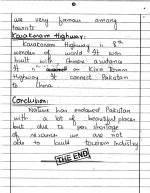 are very famous among
tourists
Karakoram Highway:
Karakoram Highway is 8th
wonder of world. It was
built with Chinese guidance
It is known as Kiva Tomia
Highway. It connect Pakistan
to China
Conclusion:
Nature has endowed Pakistan
with a lot of beautiful places
but due to shortage
of resources we are not
able to build tourism industry
THE END